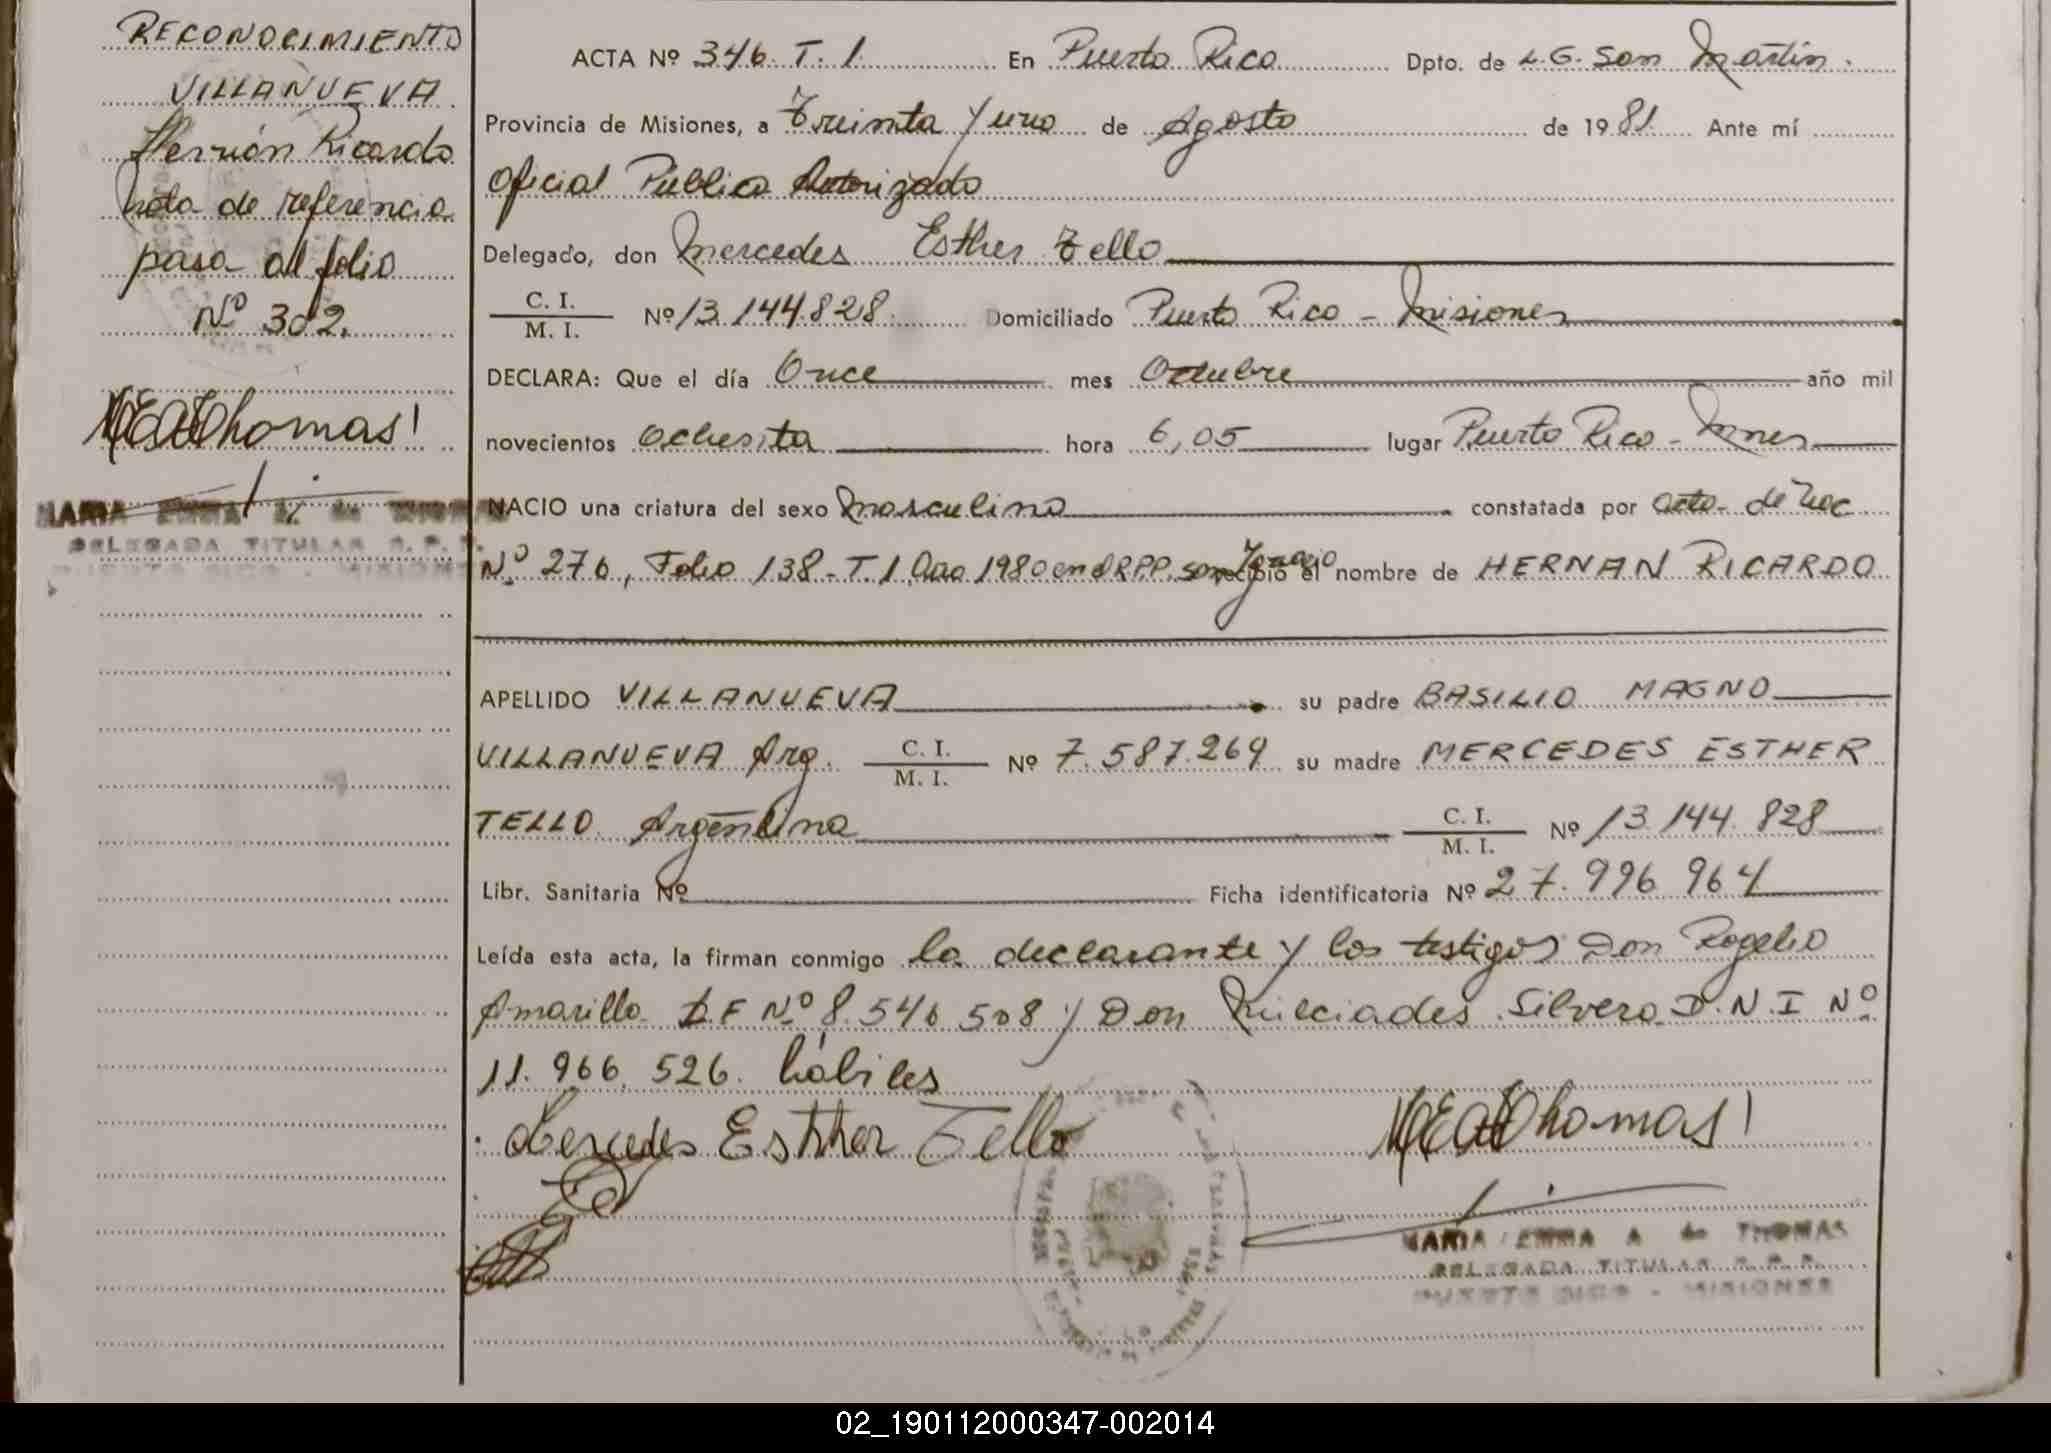 RECONOCIMIENTO
VILLANUEVA
Hernán Ricardo
nota de referencia
pasa al folio
Nº 302.
MEAdeThomas
MARIA EMMA A. de THOMAS
DELEGADA TITULAR R. P. P.
PUERTO RICO - MISIONES
ACTA Nº 346. T. 1. En Puerto Rico Dpto. de L. G. San Martín.
Provincia de Misiones, a Treinta y uno de Agosto de 1981. Ante mí
Oficial Público Autorizado
Delegado, don Mercedes Esther Tello
C. I. / M. I. Nº 13.144.828 Domiciliado Puerto Rico - Misiones
DECLARA: Que el día Once mes Octubre año mil
novecientos ochenta hora 6,05 lugar Puerto Rico - Mnes
NACIO una criatura del sexo masculino constatada por acta de Nac
Nº 276, Folio 138 - T. 1 Año 1980 en D.R.P.P. San Ignacio recibió el nombre de HERNAN RICARDO
APELLIDO VILLANUEVA su padre BASILIO MAGNO
VILLANUEVA Arg. C. I. / M. I. Nº 7.587.269 su madre MERCEDES ESTHER
TELLO Argentina C. I. / M. I. Nº 13.144.828
Libr. Sanitaria Nº Ficha identificatoria Nº 27.996.964
Leída esta acta, la firman conmigo la declarante y los testigos Don Rogelio
Amarilla L.E Nº 8.546.508 y Don Milciades Silvero D.N.I Nº
11.966.526. hábiles
Mercedes Esther Tello
MEAdeThomas
MARIA EMMA A de THOMAS
DELEGADA TITULAR R. P. P.
PUERTO RICO - MISIONES
02_190112000347-002014